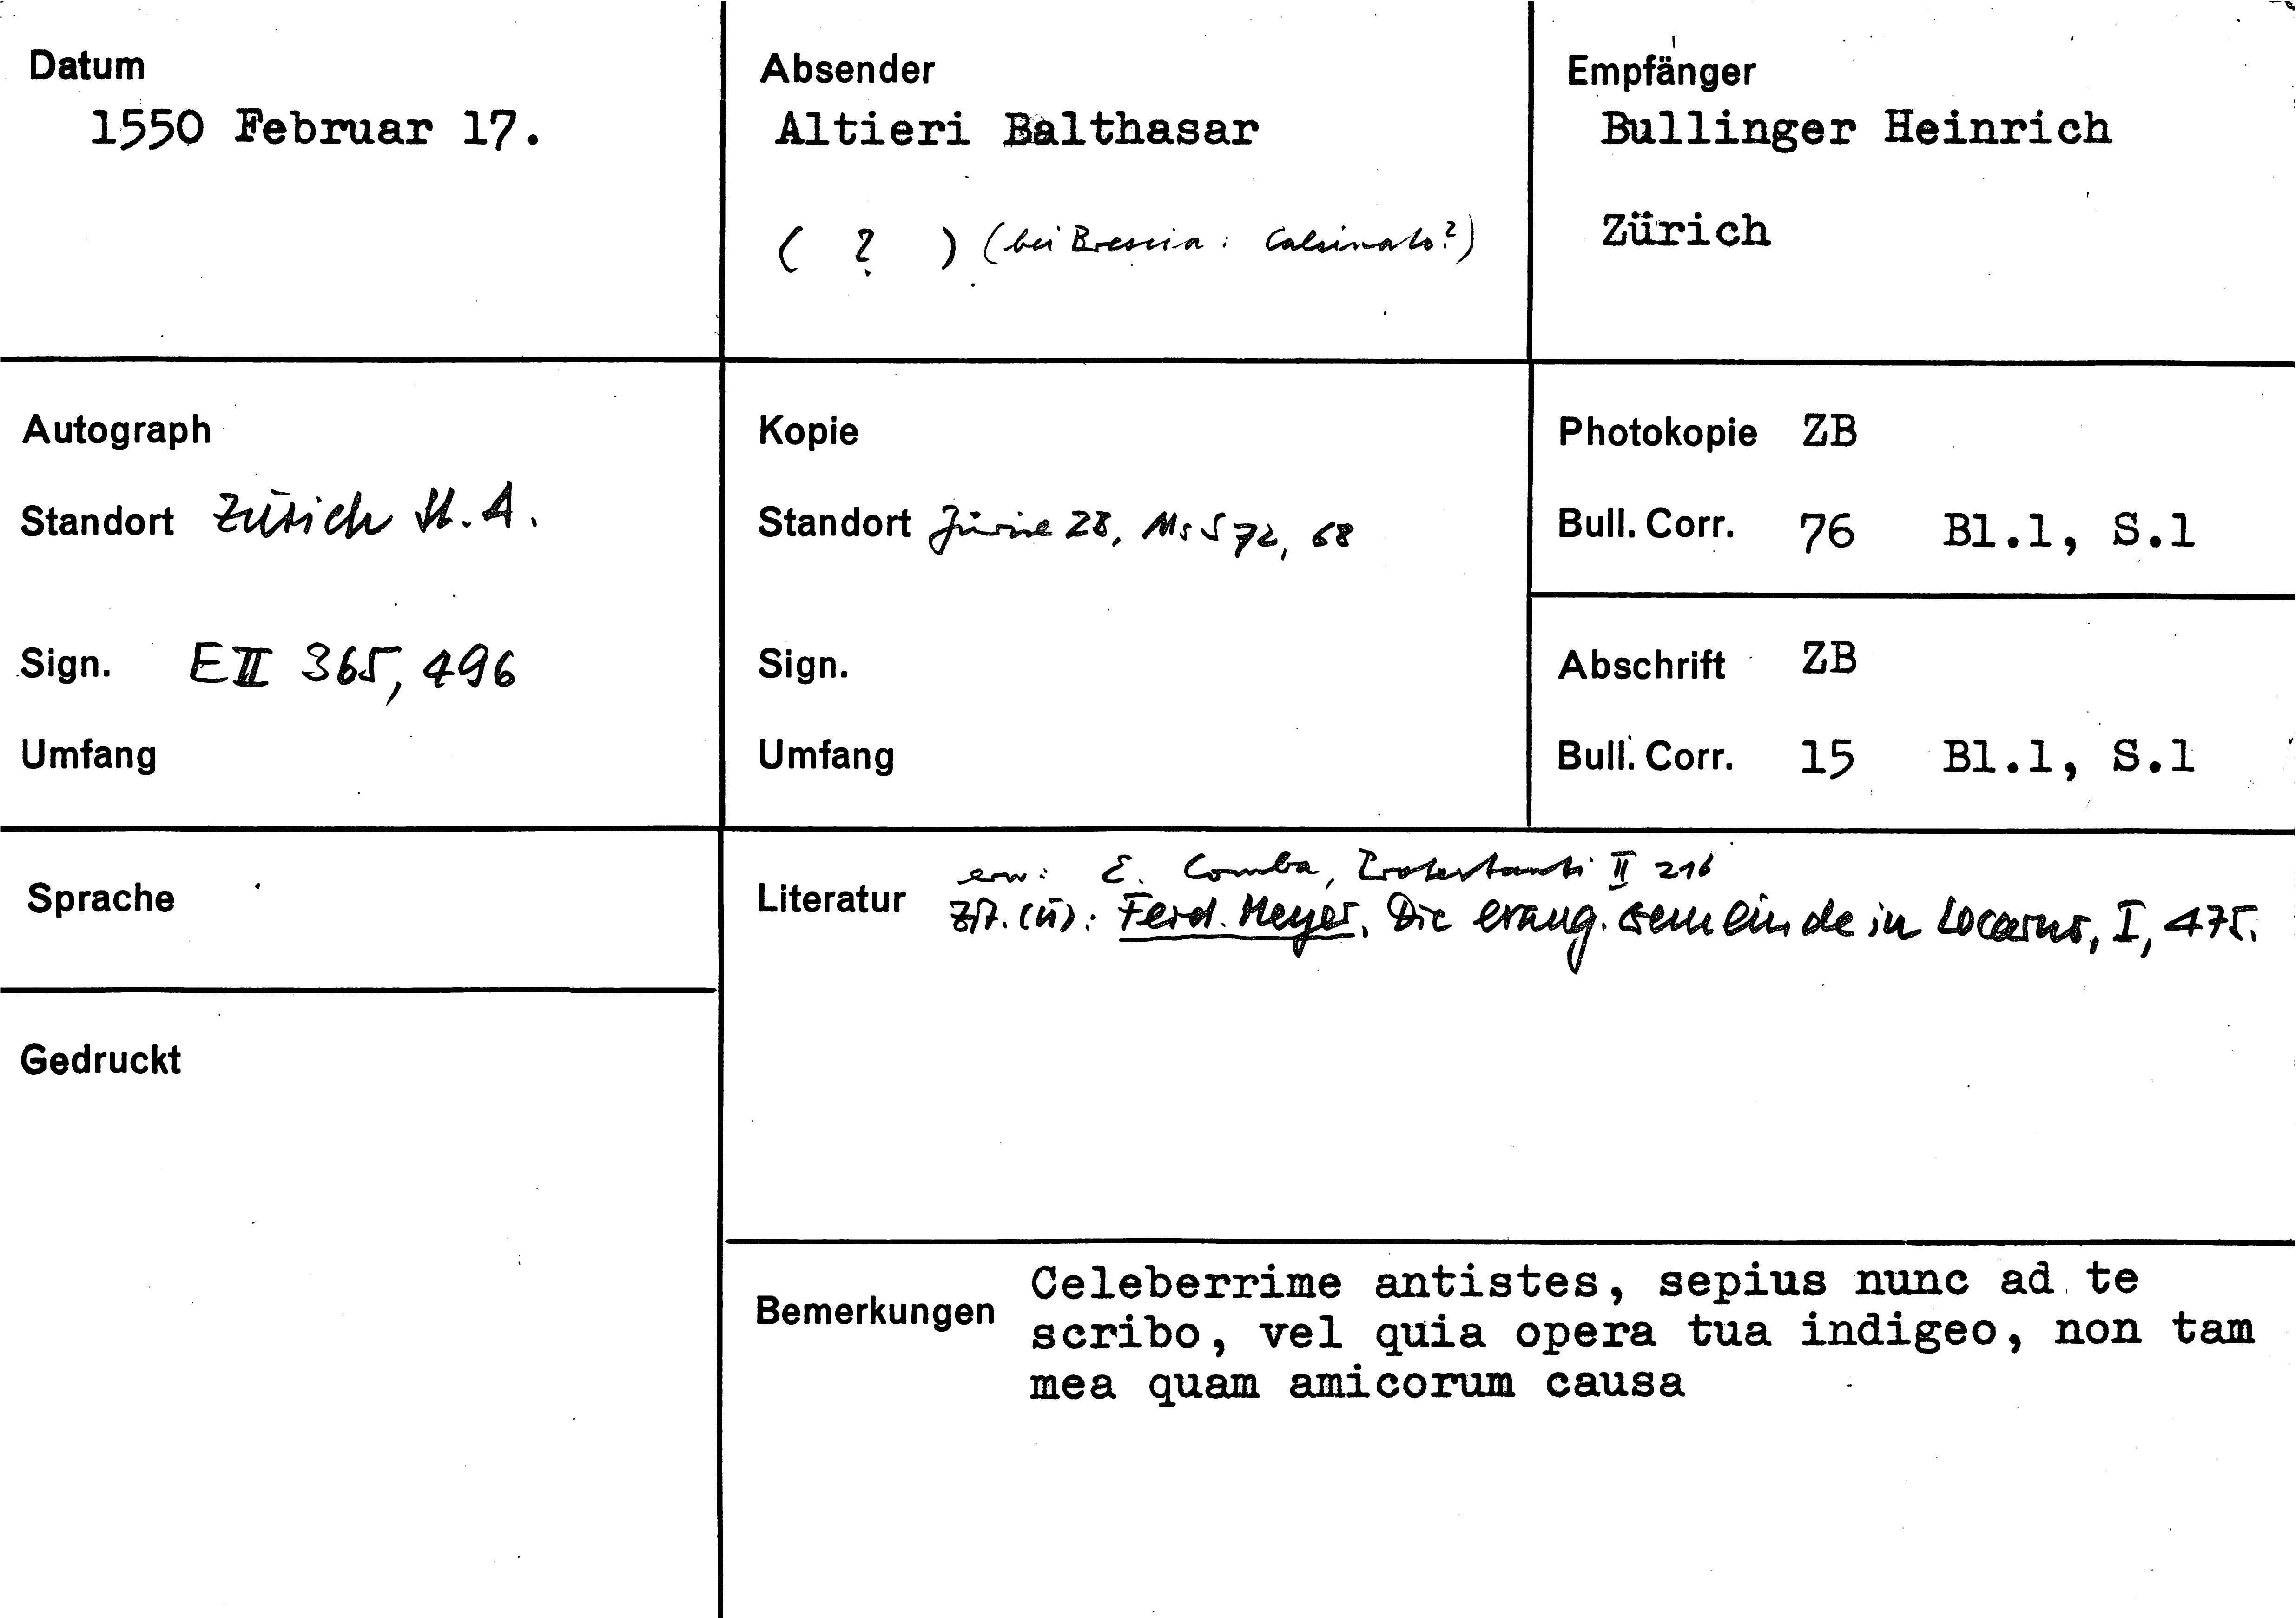 Datum
1550 Februar 17.
Absender
Altieri Balthasar
( ? ) (bei Brescia: Calsinato?)
Empfänger
Bullinger Heinrich
Zürich
Autograph
Standort Zürich St. A.
Sign. E II 365, 496
Umfang
Kopie
Standort Zürich ZB, Ms S 72, 68
Sign.
Umfang
Photokopie ZB
Bull. Corr. 76 Bl.1, S.1
Abschrift ZB
Bull. Corr. 15 Bl.1, S.1
Sprache
Gedruckt
Literatur
erw: E. Comba, Protestanti II 216
Zit. (ü): Ferd. Meyer, Die evang. Gemeinde in Locarno, I, 475.
Bemerkungen
Celeberrime antistes, sepius nunc ad te
scribo, vel quia opera tua indigeo, non tam
mea quam amicorum causa